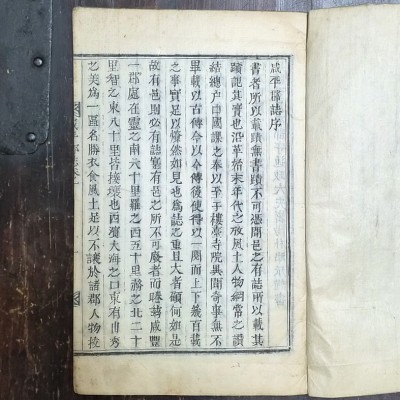 咸平郡誌序
書者所以載蹟無書蹟不可憑聞邑之有誌所以載其
蹟記其實也沿革始末年代之攷風土人物綱常之讚
結總户田國謀之奉以至于樓臺寺院異聞奇事無不
畢載以古傳今以今傳後使得以一閱而上下幾百載
之事實足以瞭然如見也為誌之重且大者顧何如是
故有邑則必有誌寔有邑之所不可廢者而睠茲咸豐
一郡處在靈之南六十里羅之西五十里務之北二十
里智之東八十里皆接壤也西濱大海之口東有山秀
之美為一區名勝衣食風土足以不讓於諸郡人物挨